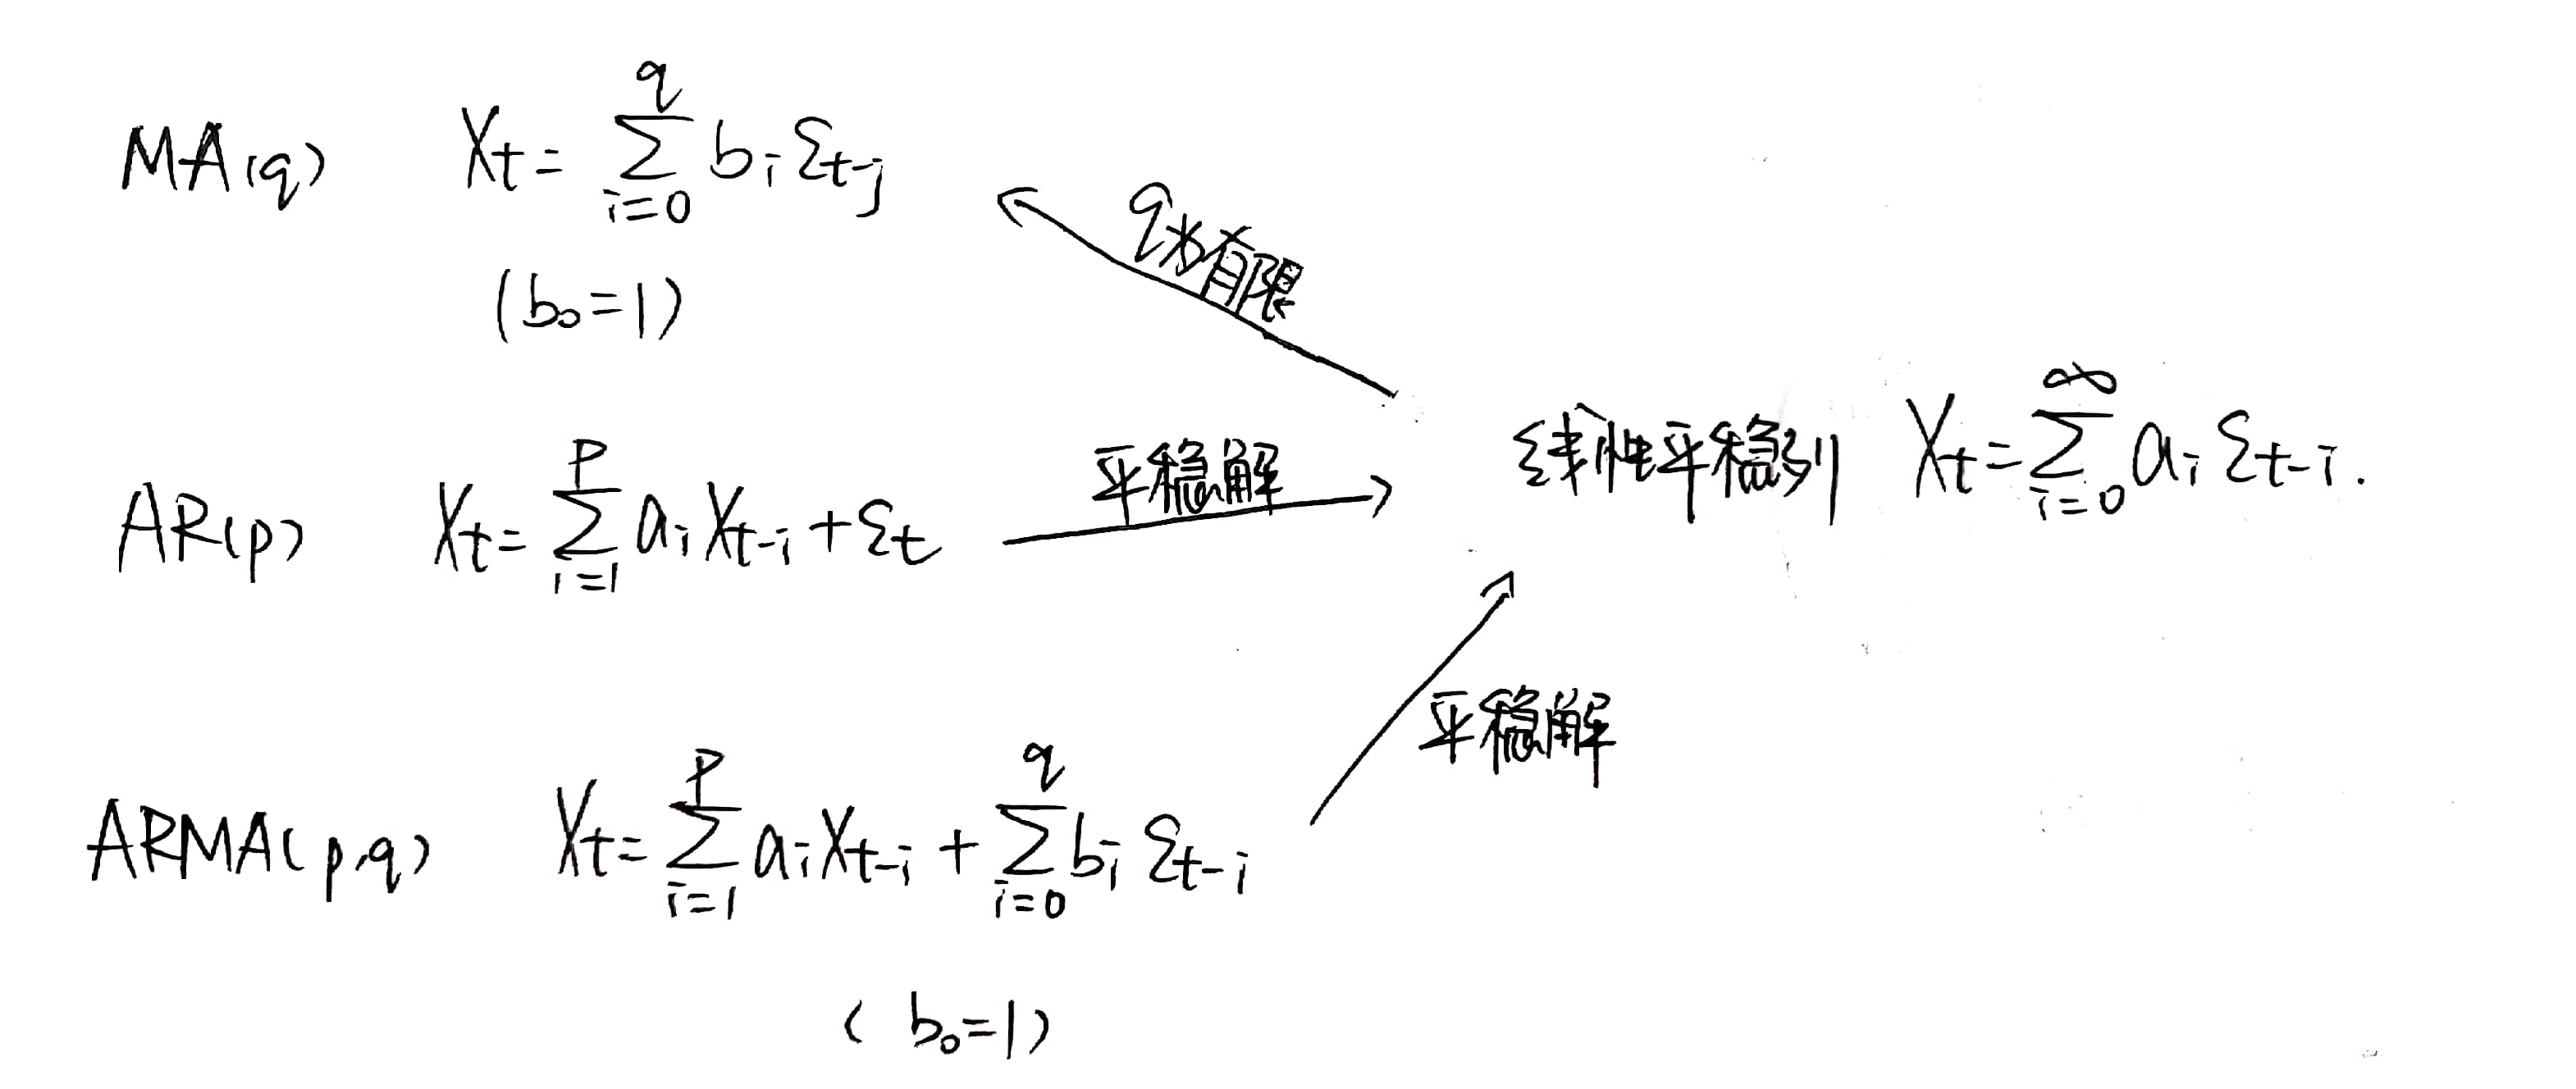 MA(q) X_t = \sum_{i=0}^{q} b_i ε_{t-j}
(b_0=1)
q为有限
AR(p) X_t = \sum_{i=1}^{p} a_i X_{t-i} + ε_t
平稳解
线性平稳列 X_t = \sum_{i=0}^{∞} a_i ε_{t-i}.
平稳解
ARMA(p,q) X_t = \sum_{i=1}^{p} a_i X_{t-i} + \sum_{i=0}^{q} b_i ε_{t-i}
(b_0=1)